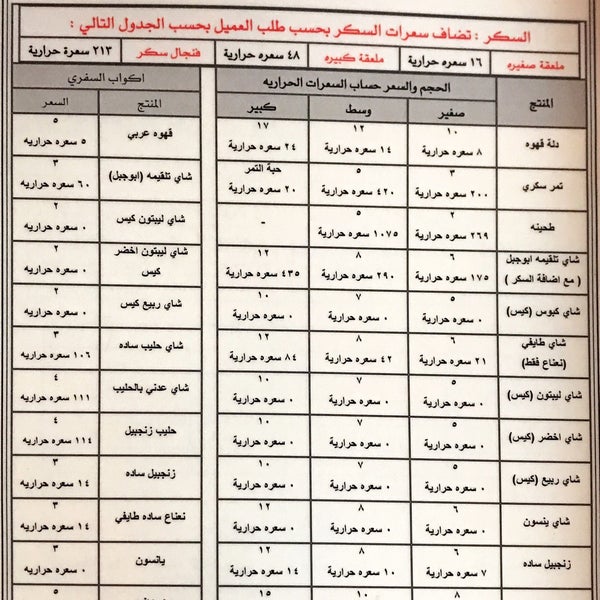 السكر : تضاف سعرات السكر بحسب طلب العميل بحسب الجدول التالي :
ملعقة صغيره ١٦ سعره حرارية ملعقة كبيره ٤٨ سعره حرارية فنجال سكر ٢١٣ سعرة حرارية
المنتج الحجم والسعر حساب السعرات الحراريه
صغير وسط كبير
دلة قهوه ١٠ ١٢ ١٧
٨ سعره حرارية ١٤ سعره حرارية ٢٤ سعره حرارية
تمر سكري ٣ ٥ حبة التمر
٢٠٠ سعره حرارية ٤٢٠ سعره حرارية ٢٠ سعره حرارية
طحينه ٢ ٥ -
٢٦٩ سعره حرارية ١٠٧٥ سعره حرارية
شاي تلقيمه ابوجبل ٦ ٨ ١٢
( مع اضافة السكر ) ١٧٥ سعره حرارية ٢٩٠ سعره حرارية ٤٣٥ سعره حرارية
شاي كبوس (كيس) ٥ ٧ ١٠
٠ سعره حرارية ٠ سعره حرارية ٠ سعره حرارية
شاي طايفي ٦ ٨ ١٢
(نعناع فقط) ٢١ سعره حرارية ٤٢ سعره حرارية ٨٤ سعره حرارية
شاي ليبتون (كيس) ٥ ٧ ١٠
٠ سعره حرارية ٠ سعره حرارية ٠ سعره حرارية
شاي اخضر (كيس) ٥ ٧ ١٠
٠ سعره حرارية ٠ سعره حرارية ٠ سعره حرارية
شاي ربيع (كيس) ٥ ٧ ١٠
٠ سعره حرارية ٠ سعره حرارية ٠ سعره حرارية
شاي ينسون ٦ ٨ ١٢
٠ سعره حرارية ٠ سعره حرارية ٠ سعره حرارية
زنجبيل ساده ٦ ٨ ١٢
٧ سعره حرارية ١٠ سعره حرارية ١٤ سعره حرارية
٨ ١٠ ١٥
اكواب السفري
المنتج السعر
قهوه عربي ٥
٥ سعره حراريه
شاي تلقيمه (ابوجبل) ٣
٦٠ سعره حراريه
شاي ليبتون كيس ٢
٠ سعره حراريه
شاي ليبتون اخضر ٢
كيس ٠ سعره حراريه
شاي ربيع كيس ٢
٠ سعره حراريه
شاي حليب ساده ٣
١٠٦ سعره حراريه
شاي عدني بالحليب ٤
١١١ سعره حراريه
حليب زنجبيل ٤
١١٤ سعره حراريه
زنجبيل ساده ٣
١٤ سعره حراريه
نعناع ساده طايفي ٣
١٤ سعره حراريه
يانسون ٣
٠ سعره حراريه
٥